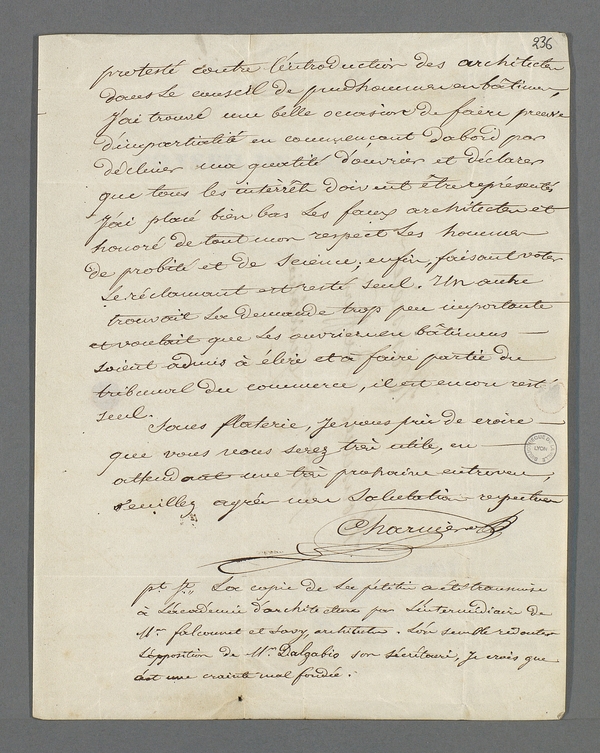 236
protesté contre l'introduction des architectes
dans le conseil de prudhommes en bâtimens,
J'ai trouvé une belle occasion de faire preuve
d'impartialité en commençant d'abord par
décliner ma qualité d'ouvrier et déclarer
que tous les interrêts doivent être représentés
J'ai placé bien bas les faux architectes et
honoré de tout mon respect les hommes
de probité et de science; enfin, faisant voter
le réclamant est resté seul. Un autre
trouvait la demande trop peu importante
et voulait que les ouvriers en bâtimens
soient admis à élire et à faire partie du
tribunal du commerce, il est encore resté
seul.
Sans flaterie, je vous prie de croire
que vous nous serez très utile, en
attendant une très prochaine entrevue,
veuillez agréer mes salutations respectueuses
Charnier
pt. Sm. La copie de la petition a été transmise
à l'académie d'architecture par l'intermédiaire de
Mrs falconnet et Savy, architectes. L'on semble redouter
l'opposition de Mr Dalgabio son sécrétaire, Je crois que
c'est une crainte mal fondée.
LYON